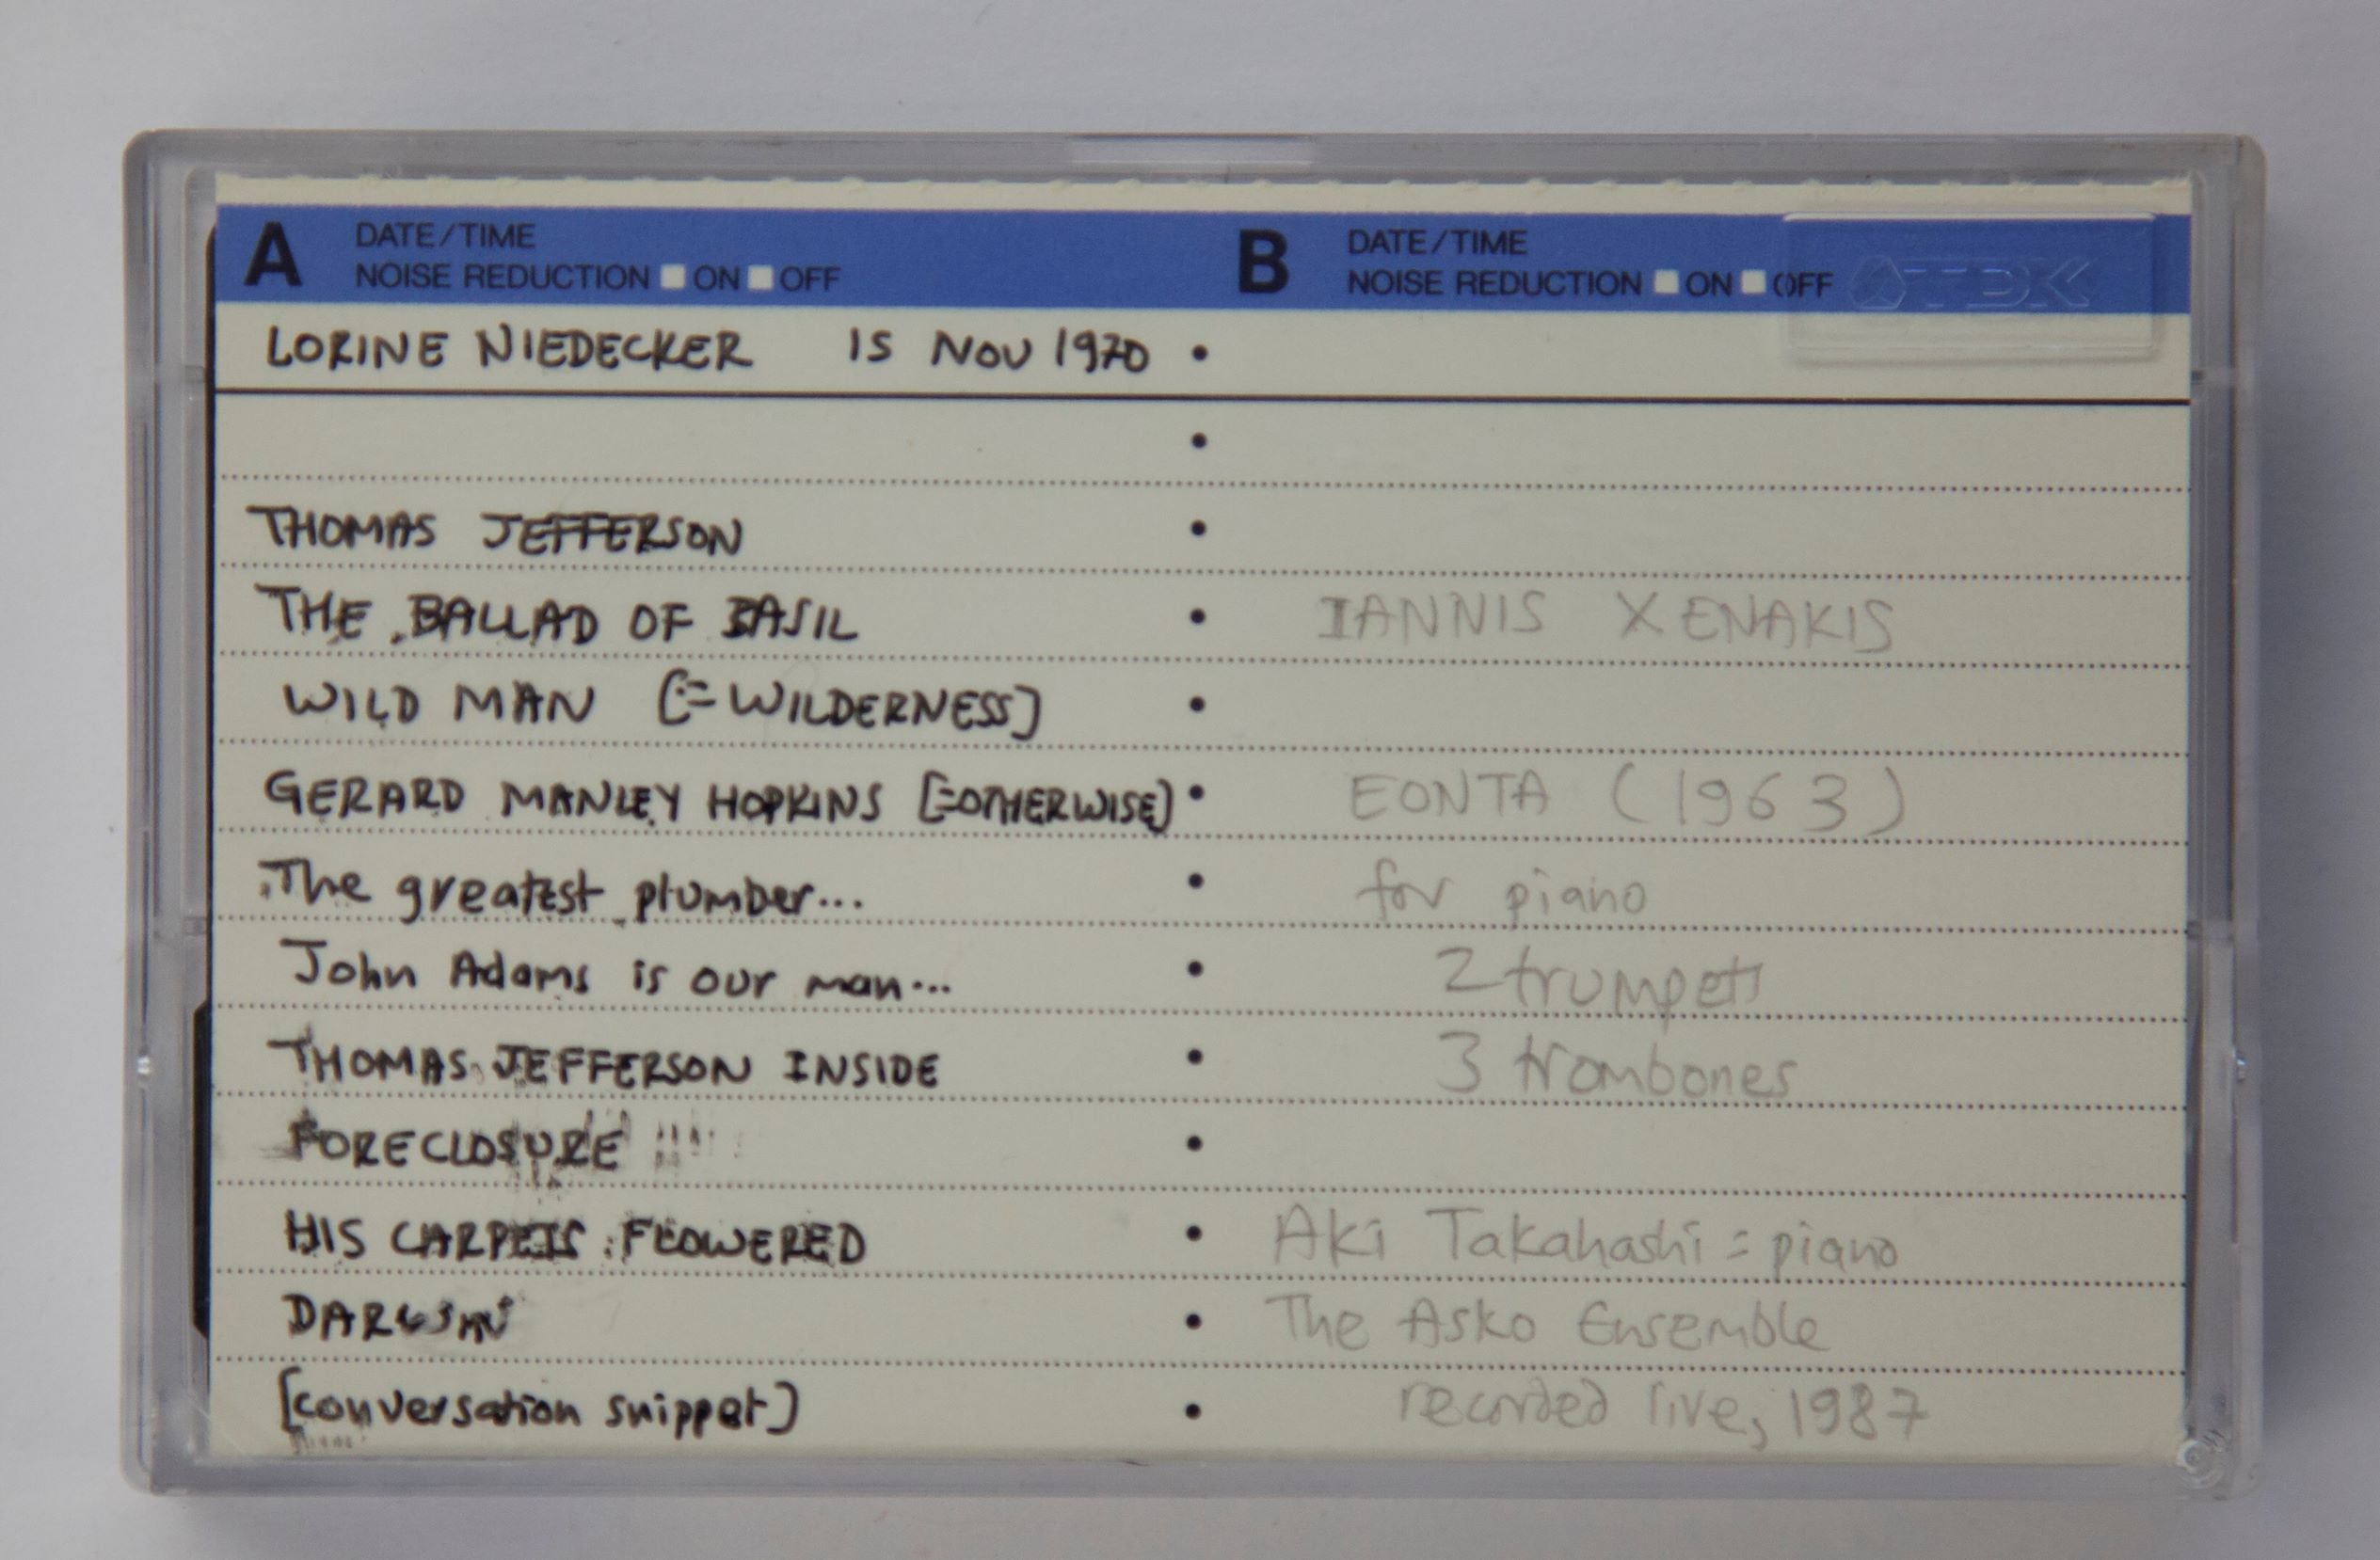 A DATE/TIME
NOISE REDUCTION ON OFF
LORINE NIEDECKER 15 NOV 1970
THOMAS JEFFERSON
THE BALLAD OF BASIL
WILD MAN [=WILDERNESS]
GERARD MANLEY HOPKINS [=OTHERWISE]
The greatest plumber...
John Adams is our man...
THOMAS JEFFERSON INSIDE
FORECLOSURE
HIS CARPETS FLOWERED
DARWIN
[conversation snippet]
B DATE/TIME
NOISE REDUCTION ON OFF
TDK
IANNIS XENAKIS
EONTA (1963)
for piano
2 trumpets
3 trombones
Aki Takahashi = piano
The Asko Ensemble
recorded live, 1987